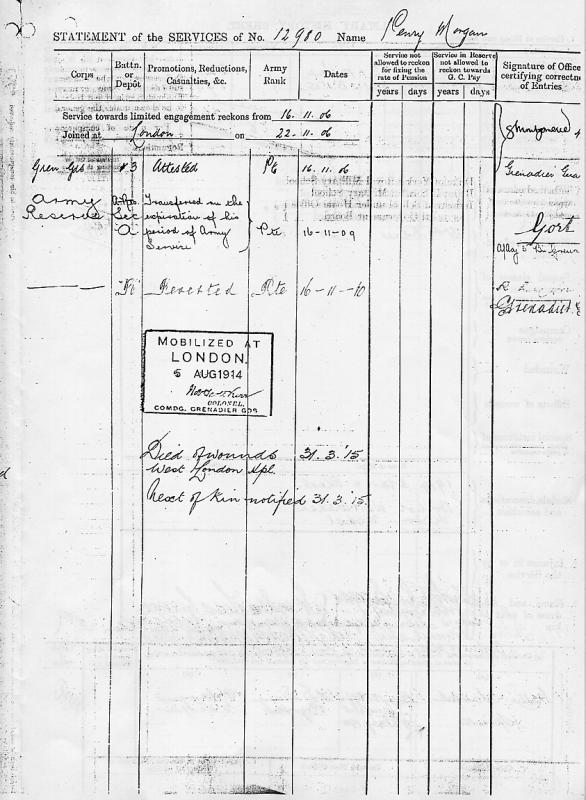 STATEMENT of the SERVICES of No. 12980 Name Penry Morgan
Corps
Battn. or Depôt
Promotions, Reductions, Casualties, &c.
Army Rank
Dates
Service not allowed to reckon for fixing the rate of Pension
years days
Service in Reserve not allowed to reckon towards G. C. Pay
years days
Signature of Office
certifying correctn
of Entries
Service towards limited engagement reckons from 16.11.06
Joined at London on 22-11-06
Gren Gds 3 Attested Pte 16.11.06
Grenadier Gua
Army Reserve
Sec A
Transferred on the
expiration of his
period of Army
Service
Pte 16-11-09
Gort
Pte 16-11-10
Grenadier
MOBILIZED AT
LONDON.
5 AUG 1914
COLONEL,
COMDG. GRENADIER GDS
Died of wounds 31.3.'15
West London Hpl.
Next of Kin notified 31.3.'15